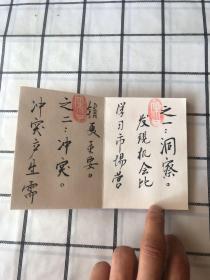 之一：洞察。
发现机会比
学习市场营
销更重要。
之二：冲突。
冲突产生需